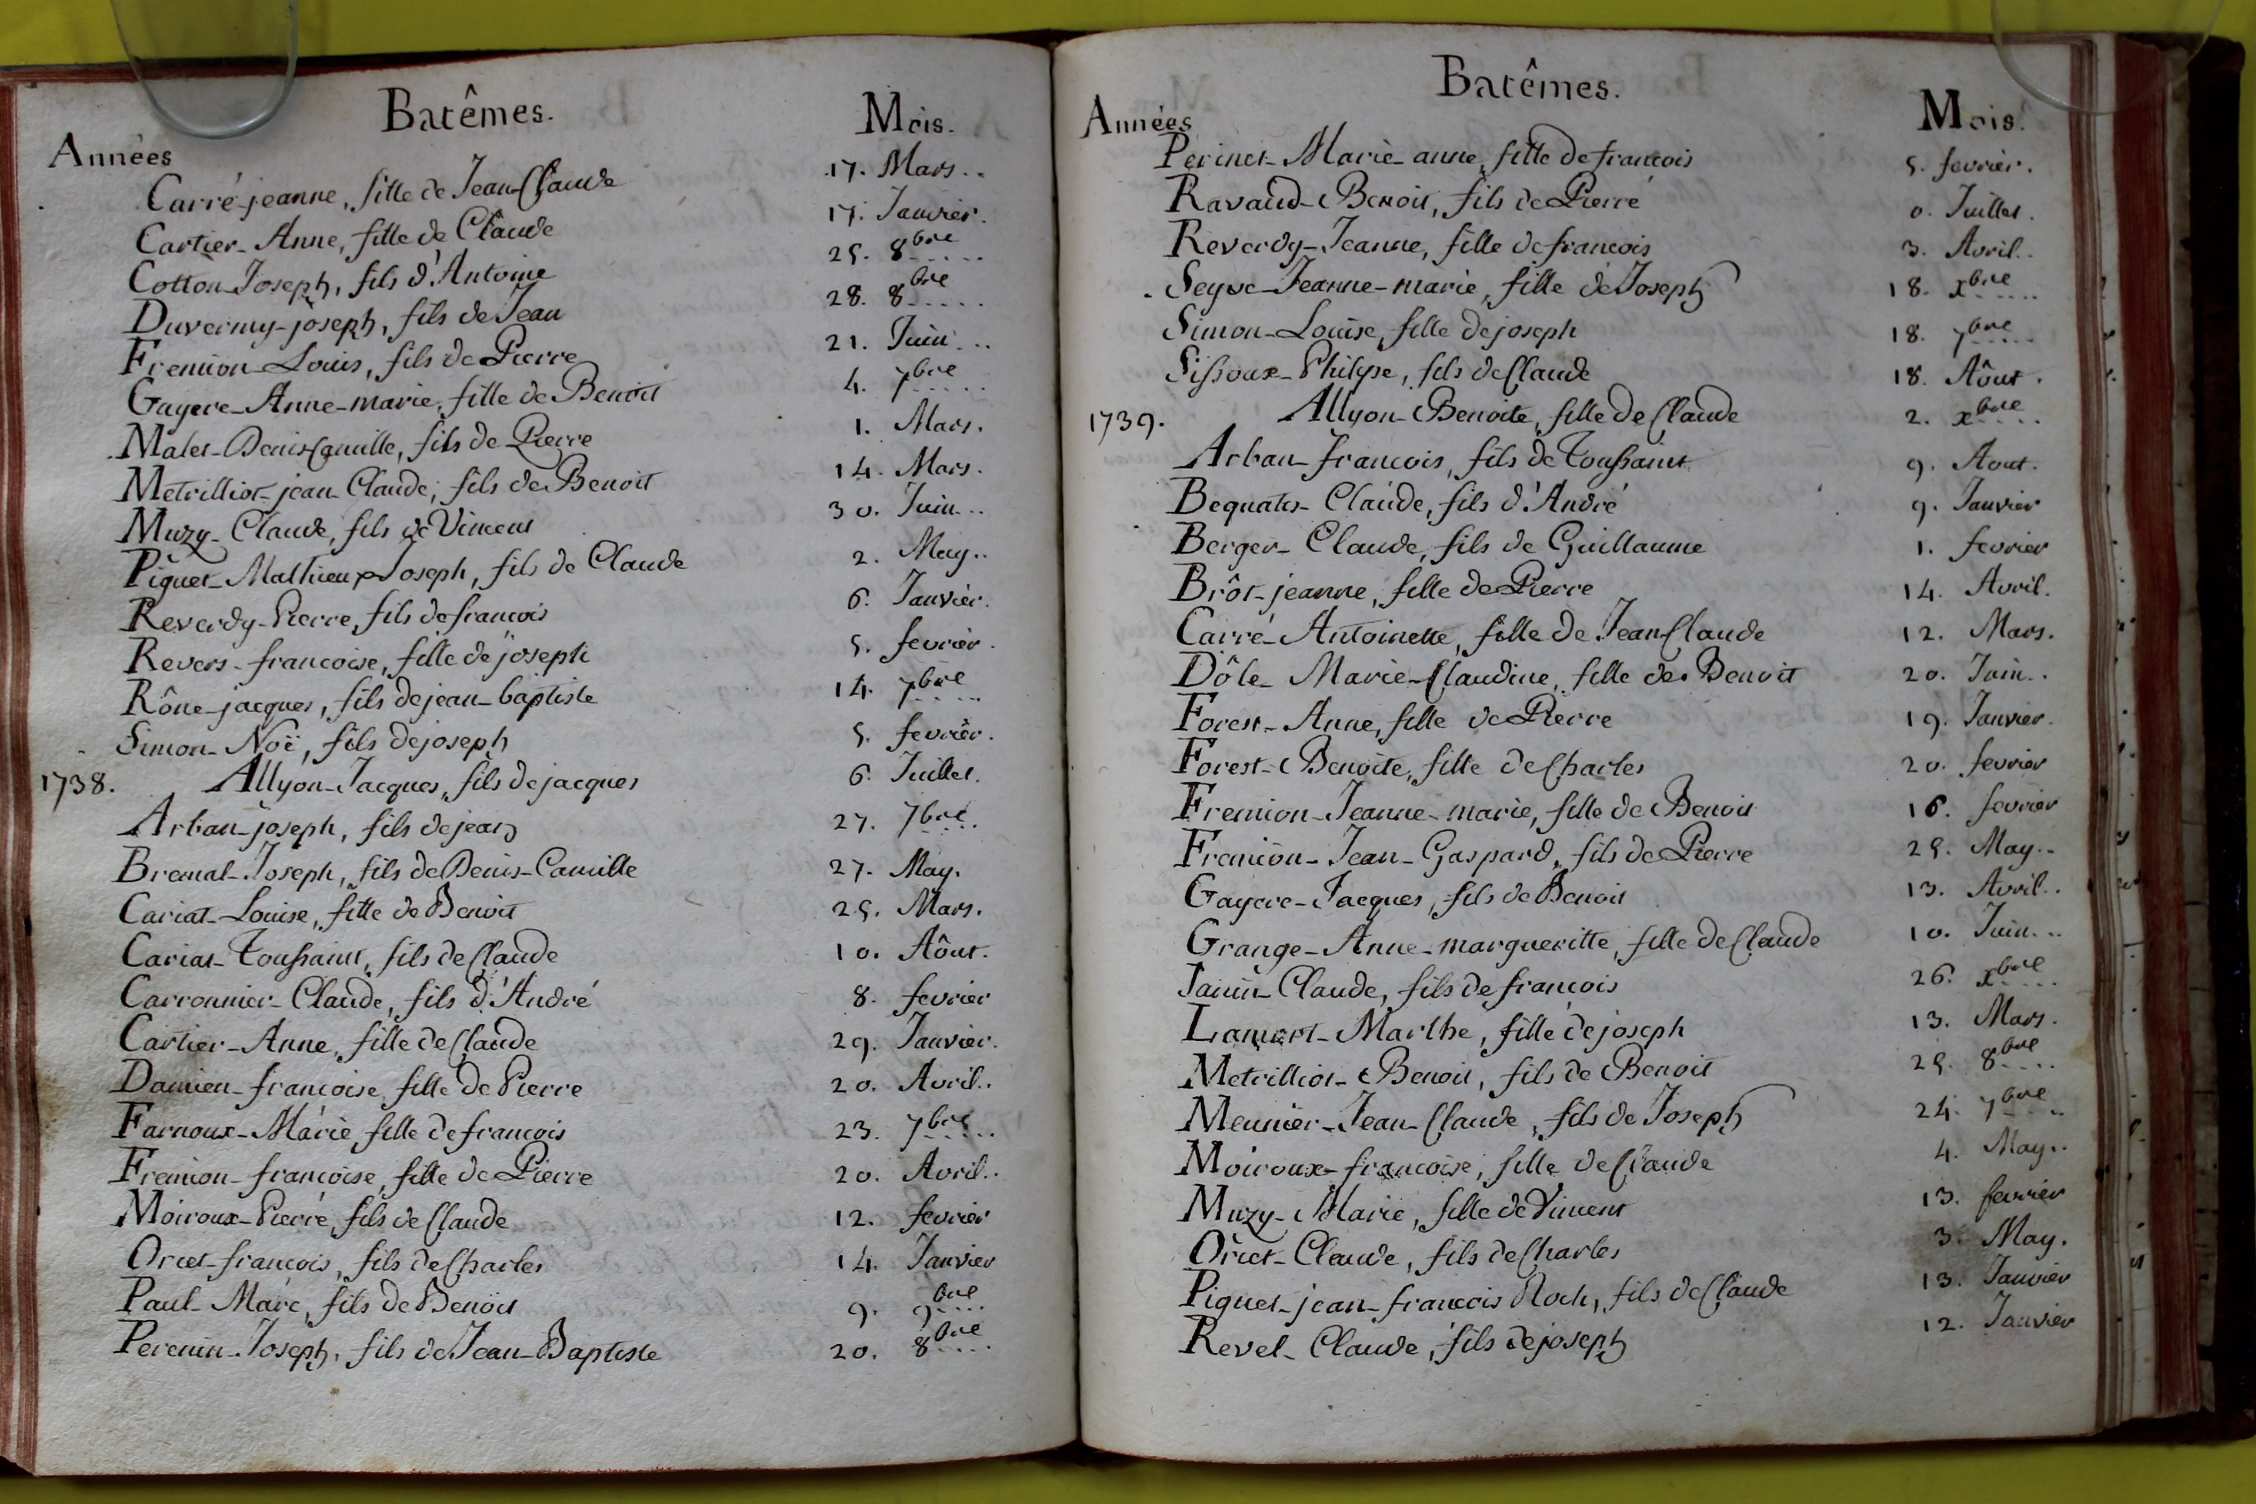 Batêmes.
Années Mois.
Carré-jeanne, fille de Jean-Claude 17. Mars..
Cartier-Anne, fille de Claude 17. Janvier.
Cotton-Joseph, fils d'Antoine 25. 8bre
Duvermy-joseph, fils de Jean 28. 8bre
Fremion-Louis, fils de Pierre 21. Juin...
Gayere-Anne-marie, fille de Benoit 4. 7bre
Malet-Denis Camille, fils de Pierre 1. Mars.
Metrilliot-jean-Claude, fils de Benoit 14. Mars.
Muzy-Claude, fils de Vincent 30. Juin...
Piquet-Mathieu-Joseph, fils de Claude 2. May..
Reverdy-Pierre, fils de francois 6. Janvier.
Revers-francoise, fille de joseph 5. fevrier.
Rône-jacques, fils de jean-baptiste 14. 7bre
Simon-Noë, fils de joseph 5. fevrier.
1738. Allyon-Jacques, fils de jacques 6. Juillet.
Arban-joseph, fils de jean 27. 7bre
Bremal-Joseph, fils de Denis-Camille 27. May.
Cariat-Louise, fille de Benoit 25. Mars.
Cariat-Toussaint, fils de Claude 10. Aôut.
Carronnier-Claude, fils d'André 8. fevrier
Cartier-Anne, fille de Claude 29. Janvier.
Damien-françoise, fille de Pierre 20. Avril..
Farnoux-Marie, fille de francois 23. 7bre
Fremion-francoise, fille de Pierre 20. Avril..
Moiroux-Pierre, fils de Claude 12. fevrier
Orcet-francois, fils de Charles 14. Janvier
Paul-Marc, fils de Benoit 9. 9bre
Perenin-Joseph, fils de Jean-Baptiste 20. 8bre
Batêmes.
Années Mois.
Perinet-Marie-anne, fille de francois 5. fevrier.
Ravaud-Benoit, fils de Pierre 0. Juillet.
Reverdy-Jeanne, fille de francois 3. Avril..
Seyve-Jeanne-marie, fille de Joseph 18. xbre
Simon-Louise, fille de joseph 18. 7bre
Sissoux-Philype, fils de Claude 18. Aôut.
1739. Allyon-Benoite, fille de Claude 2. xbre
Arban-francois, fils de Toussaint 9. Aout.
Bequates-Claude, fils d'André 9. Janvier
Berger-Claude, fils de Guillaume 1. fevrier
Brôt-jeanne, fille de Pierre 14. Avril.
Carré-Antoinette, fille de Jean Claude 12. Mars.
Dôle-Marie-Claudine, fille de Benoit 20. Juin..
Forest-Anne, fille de Pierre 19. Janvier.
Forest-Benoite, fille de Charles 20. fevrier
Fremion-Jeanne-marie, fille de Benoit 16. fevrier
Fremion-Jean-Gaspard, fils de Pierre 25. May..
Gayere-Jacques, fils de Benoit 13. Avril..
Grange-Anne-margueritte, fille de Claude 10. Juin...
Janin-Claude, fils de francois 26. xbre
Lambert-Marthe, fille de joseph 13. Mars.
Metrilliot-Benoit, fils de Benoit 25. 8bre
Meunier-Jean-Claude, fils de Joseph 24. 7bre
Moiroux-francoise, fille de Claude 4. May..
Muzy-Marie, fille de Vincent 13. fevrier
Orcet-Claude, fils de Charles 3. May.
Piquet-jean-francois Roch, fils de Claude 13. Janvier
Revel-Claude, fils de joseph 12. Janvier